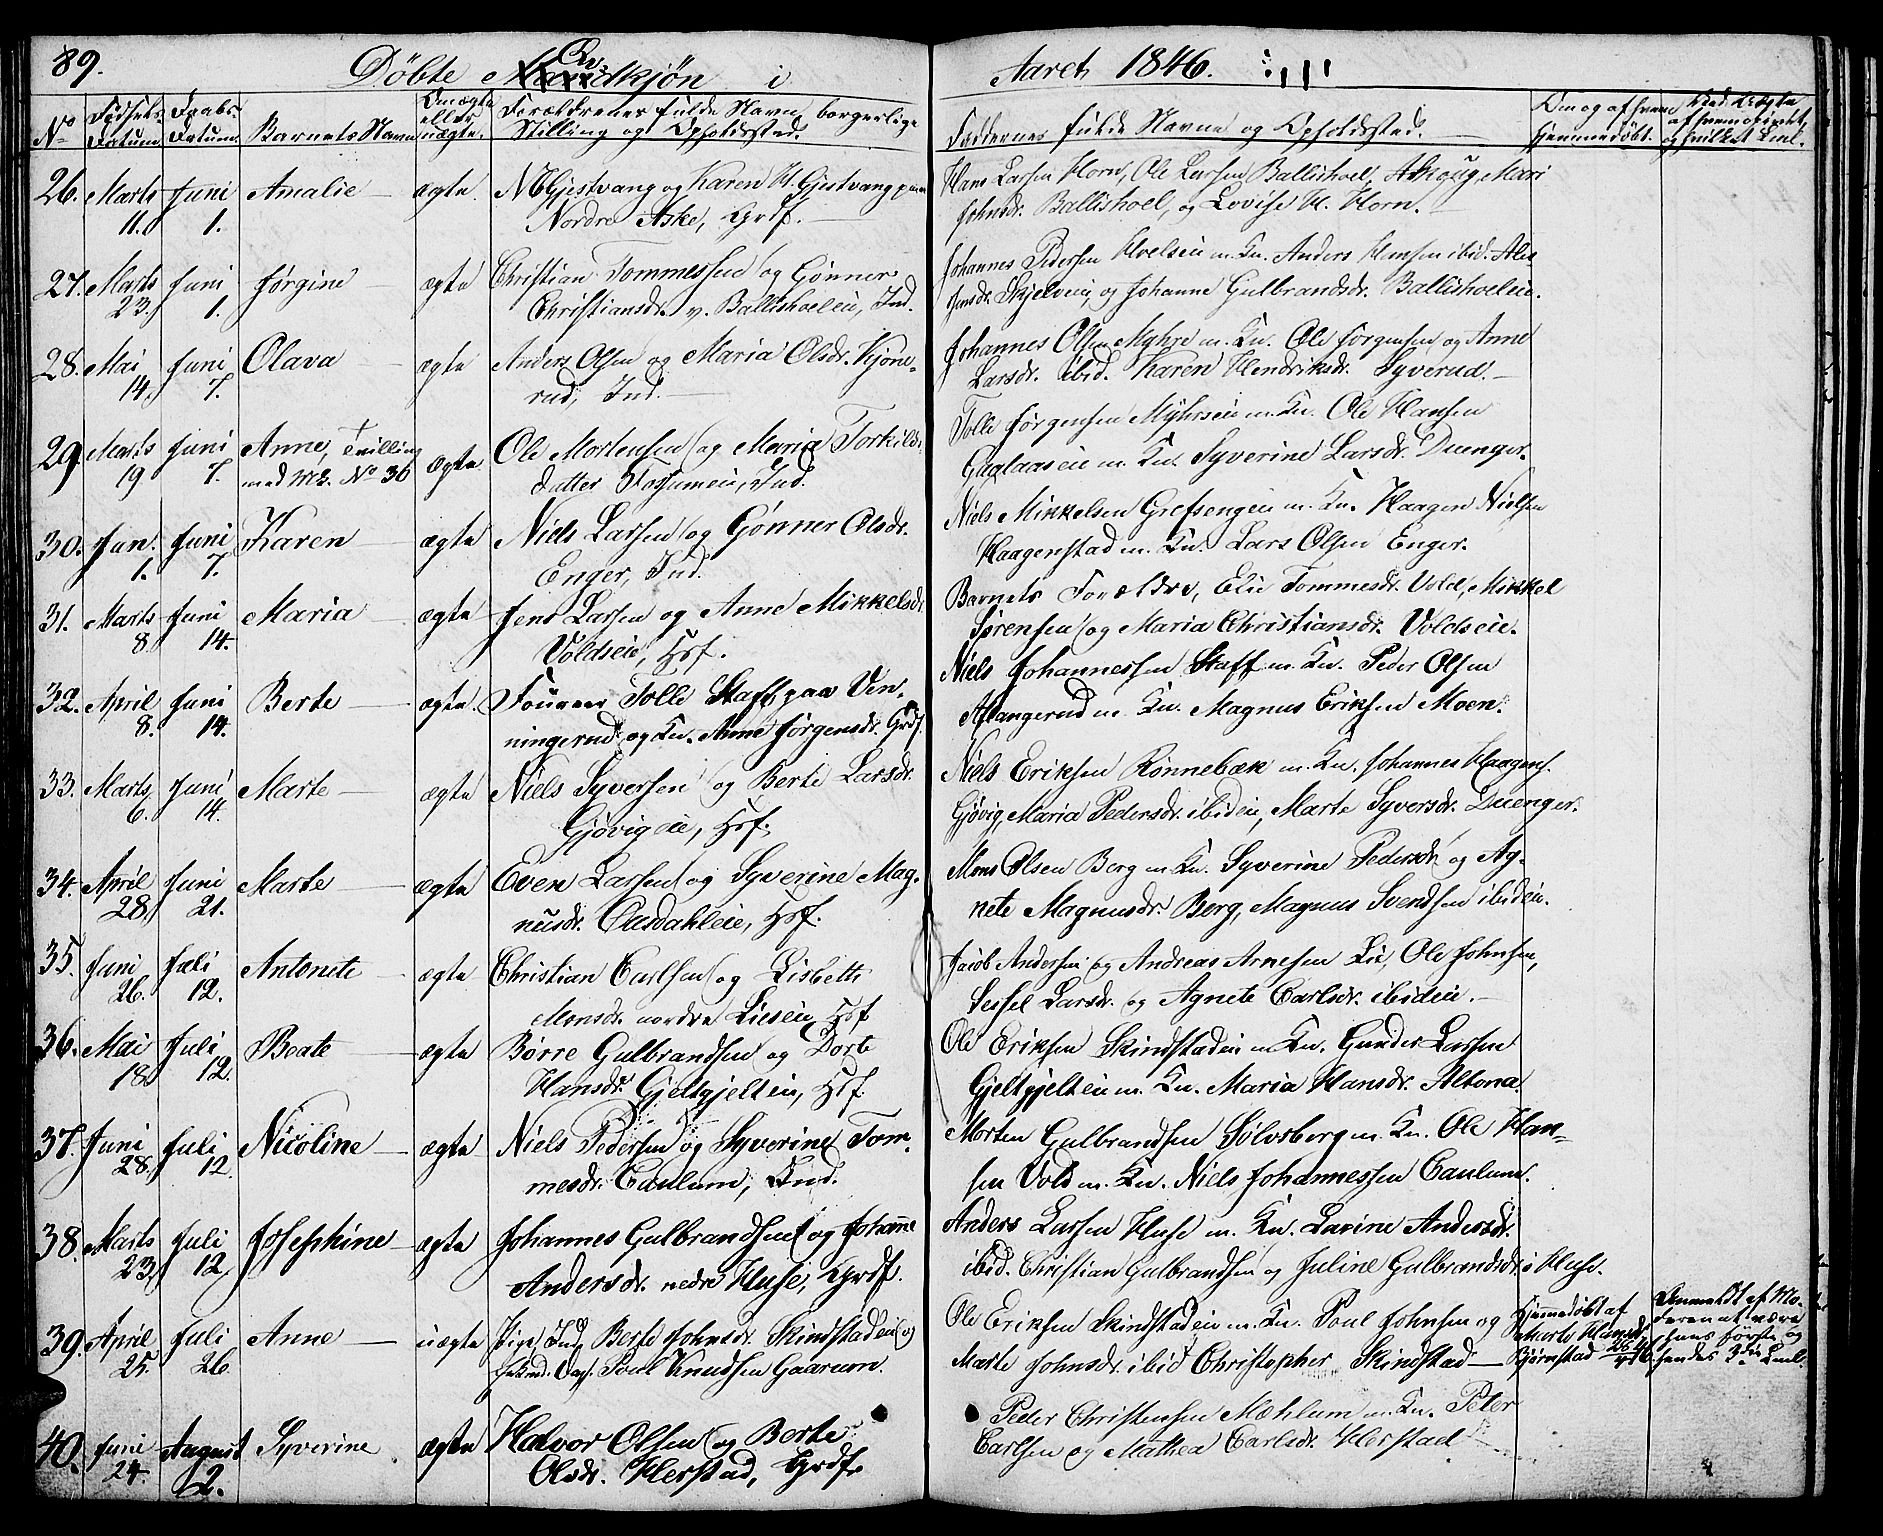 89.
Døbte Qv. Mandkjøn i Aaret 1846.
No Fødsels Datum. Daabs Datum. Barnets Navn Om ægte eller uægte. Forældrenes fulde Navn, borgerlige Stilling og Opholdssted. Faddernes fulde Navne og Opholdssted. Om og af hvem hjemmedøbt. Ved Uægte af hvem opgivet, og hvilket Leml.
26. Marts Juni Amalie ægte. N Gjestvang og Karen H. Gjestvang paa
11. 1. Nordre Aske, Grdf.
Hans Larsen Horn, Ole Larsen Ballishoel, Mari
Johnsdr. Ballishoel, og Lovise H. Horn.
27. Marts Juni Jørgine ægte Christian Tommessen og Gønner
23. 1. Christiansdr. v. Ballishoeleie, Ind.
Johannes Pedersen Hoelseie m. Kv. Anders Hansen ibid.
Skjelveie, og Johanne Gulbrandsdr. Ballishoeleie.
28. Mai Juni Olava ægte Anders Olsen og Maria Olsdr. Kjone-
14. 7. rud, Ind.
Johannes Olsen Myhre m. Kv. Ole Jørgensen og Anne
Larsdr. ibid. Karen Hendriksdr. Syverud.
29. Marts Juni Anne, Tvilling ægte Ole Mortensen og Maria Torkilds
19 7. med No 36 datter Fossumeie, Ind.
Tolle Jørgensen Myhrseie m. Kv. Ole Hansen
m. Kv. Syverine Larsdr. Duenger.
30. Jan. Juni Karen ægte Niels Larsen og Gønner Olsdr.
1. 7. Enger, Ind.
Niels Mikkelsen Grefsengeie m. Kv. Haagen Nielsen
Haagenstad m. Kv. Lars Olsen Enger.
31. Marts Juni Maria ægte Jens Larsen og Anne Mikkelsdr.
8. 14. Voldseie, Hsf.
Barnets Forældre, Elie Tommesdr. Vold, Mikkel
Sørensen og Maria Christiansdr. Voldseie.
32. April Juni Berte ægte. Tolle Staff paa Ven-
8. 14. ningerud og Kv. Anne Jørgensdr. Grdf.
Niels Johannessen Staff m. Kv. Peder Olsen
Aslangerud m. Kv. Magnus Eriksen Moen.
33. Marts Juni Marte ægte Niels Syversen og Berte Larsdr.
6. 14. Gjøvigeie, Hsf.
Niels Eriksen Rønnebæk m. Kv. Johannes Haagens.
Gjøvig, Maria Pedersdr. ibideie, Marte Syversdr. Duenger.
34. April Juni Marte ægte Even Larsen og Syverine Mag-
28. 21. nusdr. Aasdahleie, Hsf.
Mons Olsen Berg m. Kv. Syverine Pedersdr. og Ag-
nete Magnusdr. Berg, Magnus Svendsen ibideie.
35. Juni Juli Antonete ægte Christian Carlsen og Lisbeth
26. 12. Monsdr. nordre Lieseie, Hsf
Jacob Andersen og Andreas Arnesen Lie, Ole Johnsen,
Sessel Larsdr. og Agnete Carlsdr. ibideie.
36. Mai Juli Beate ægte Børre Gulbrandsen og Dorte
18. 12. Hansdr. Gjeltgjelteie, Hsf.
Ole Eriksen Skindstadeie m. Kv. Gunder Larsen
Gjeltgjelteie m. Kv. Maria Hansdr. Altona.
37. Juni Juli Nicoline ægte Niels Pedersen og Syverine Tom-
28. 12. mesdr. Caulum, Ind.
Morten Gulbrandsen Sølvsberg m. Kv. Ole Han-
sen Vold m. Kv. Niels Johannessen Caulum.
38. Marts Juli Josephine ægte Johannes Gulbrandsen og Johanne
23. 12. Andersdr. nedre Huse, Grdf.
Anders Larsen Huse m. Kv. Larine Andersdr.
ibid. Christian Gulbrandsen og Juline Gulbrandsdr. i Huse.
39. April Juli Anne uægte Pige, Ind. Berte Johnsdr. Skindstadeie og
25. 26. Poul Knudsen Gaarum.
Ole Eriksen Skindstadeie m. Kv. Poul Johnsen og
Marte Johnsdr. ibid Christopher Skindstad
Hjemmedøbt af
Marte Hansdr.
Bjørnstad 26/4 46.
Anmeldt af Mo-
deren at være
hans første og
hendes 3die Leml.
40. Juni August Syverine ægte Halvor Olsen og Berte
24. 2. Olsdr. Herstad, Grdf.
Peder Christensen Mæhlum m. Kv. Peter
Carlsen og Mathea Carlsdr. Herstad